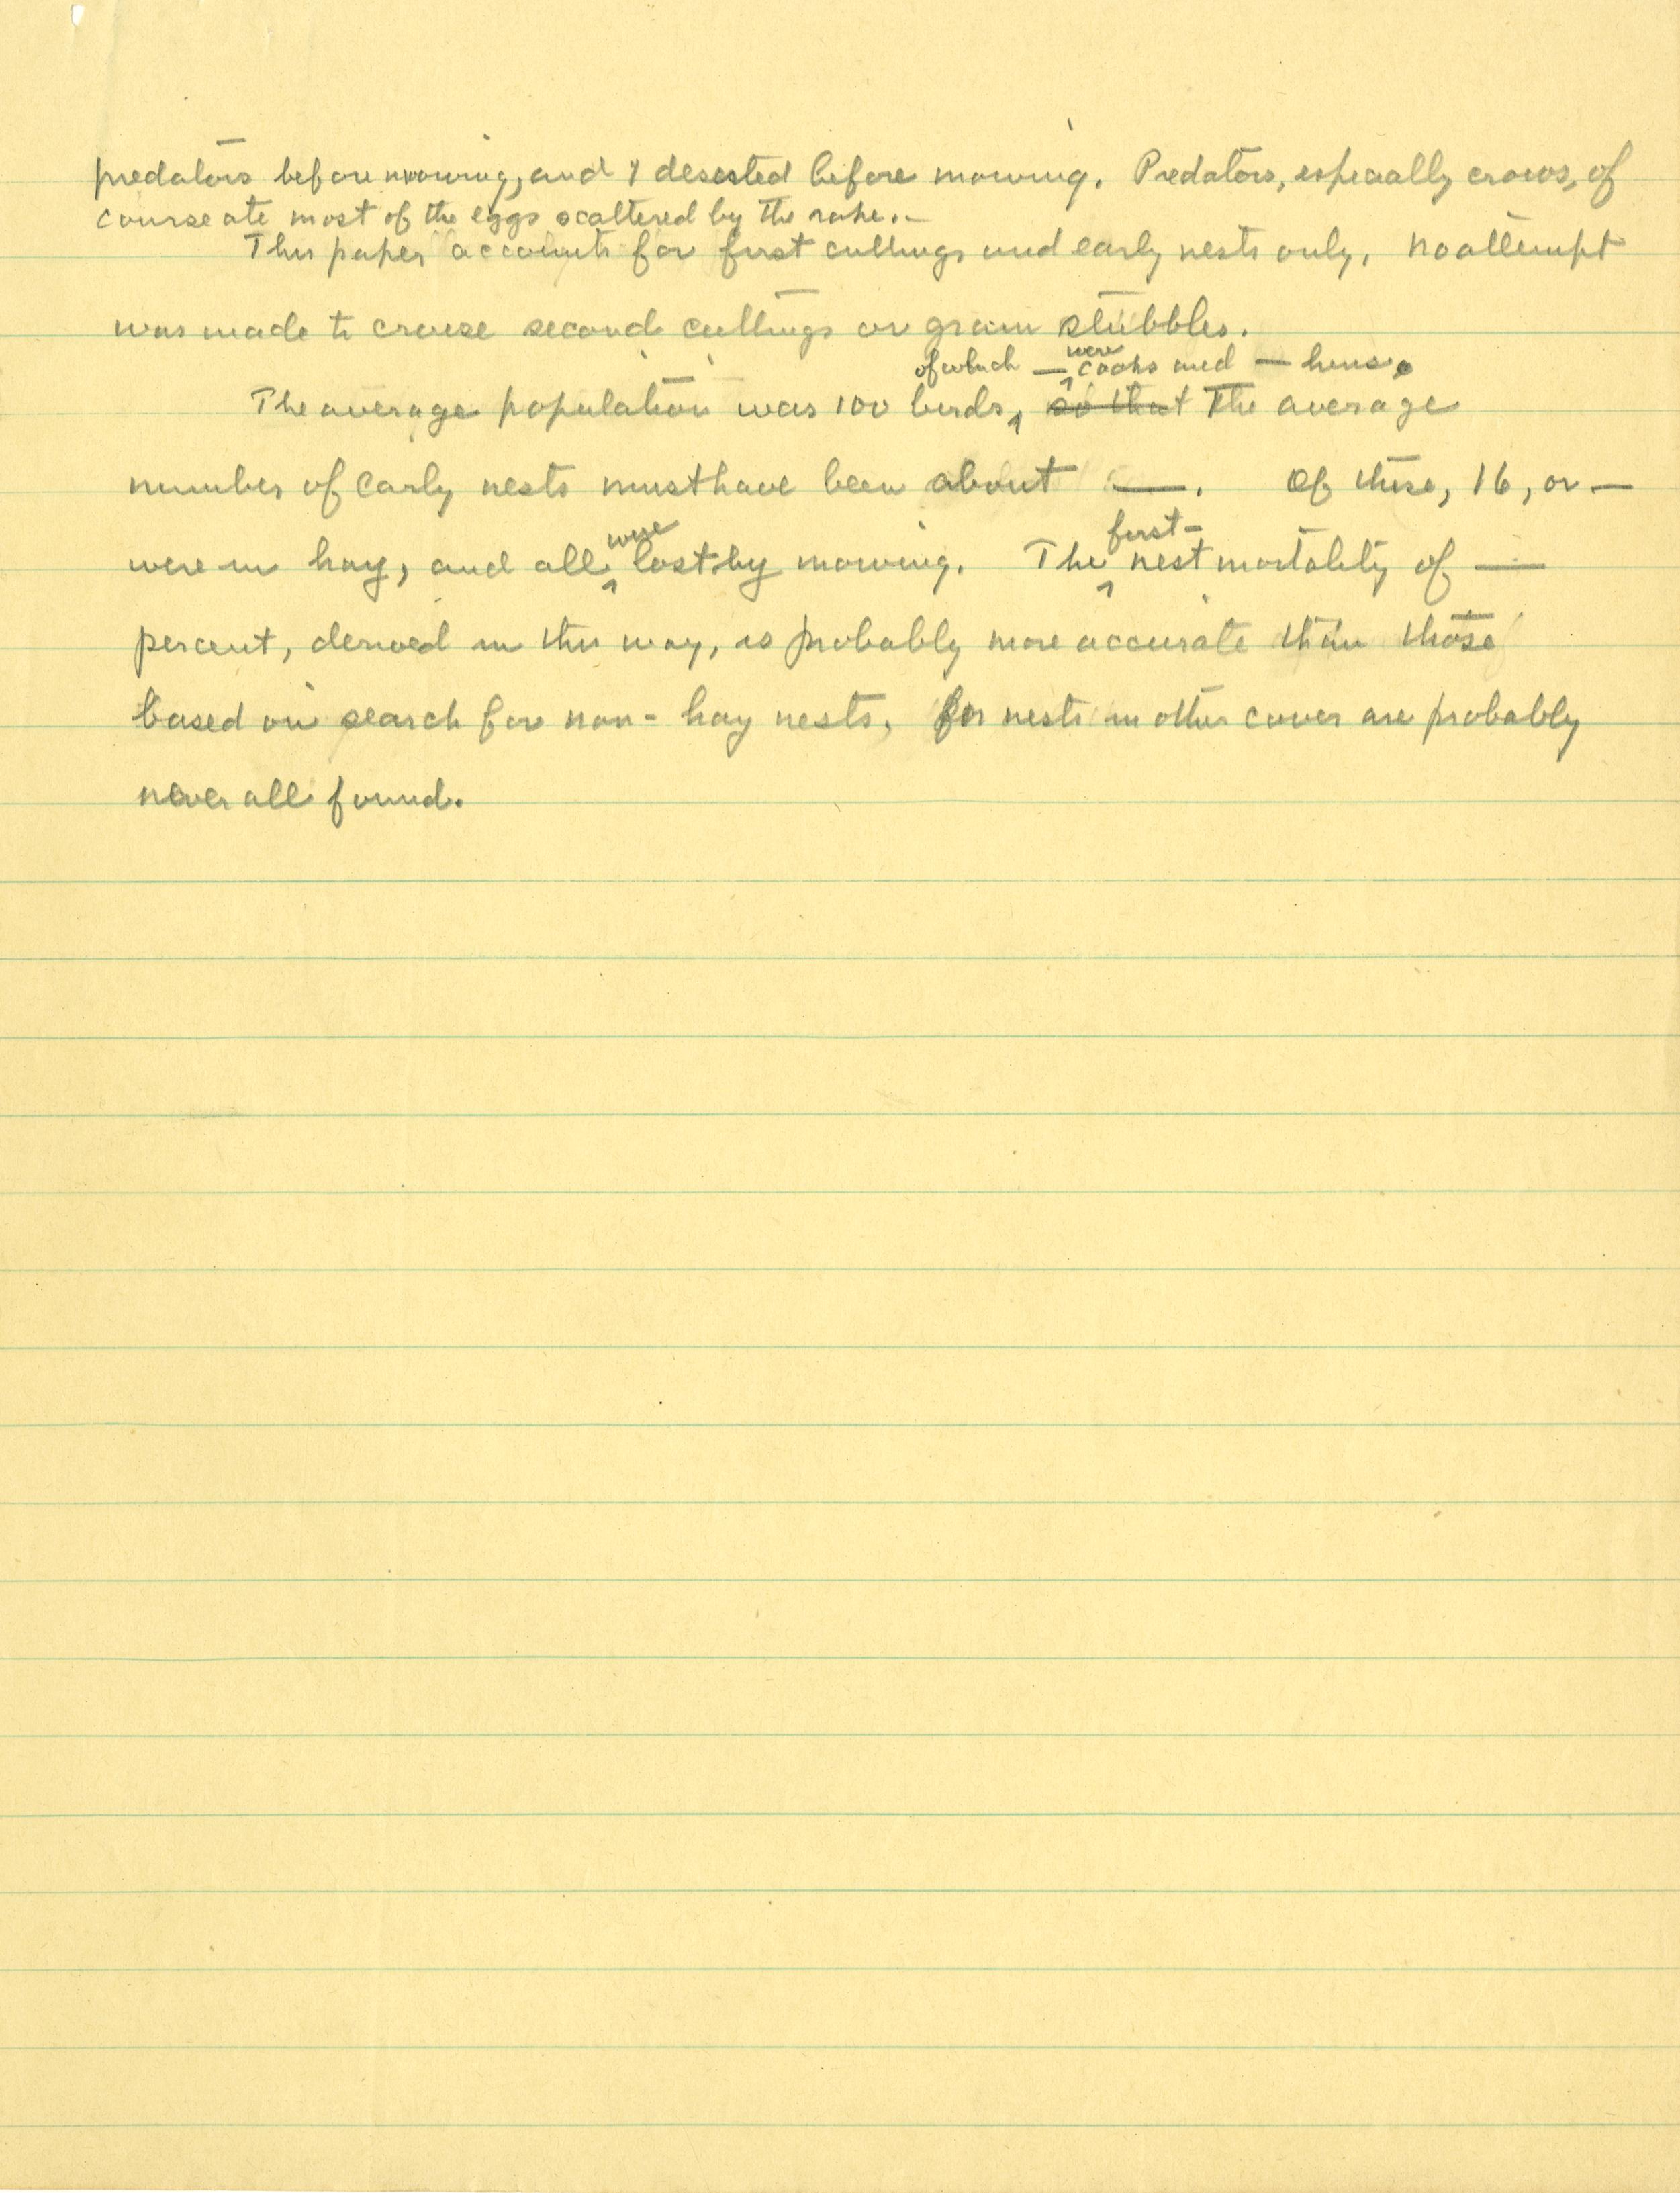 predators before mowing, and 1 deserted before mowing. Predators, especially crows, of
course ate most of the eggs scattered by the rake.
This paper accounts for first cuttings and early nests only. No attempt
was made to cruise second cuttings or grain stubbles.
of which — were cocks and — hens.
The average population was 100 birds, so that The average
number of early nests must have been about —. Of these, 16, or —
were in hay, and all were lost by mowing. The first-nest mortality of —
percent, derived in this way, is probably more accurate than those
based on search for non-hay nests, for nests in other cover are probably
never all found.